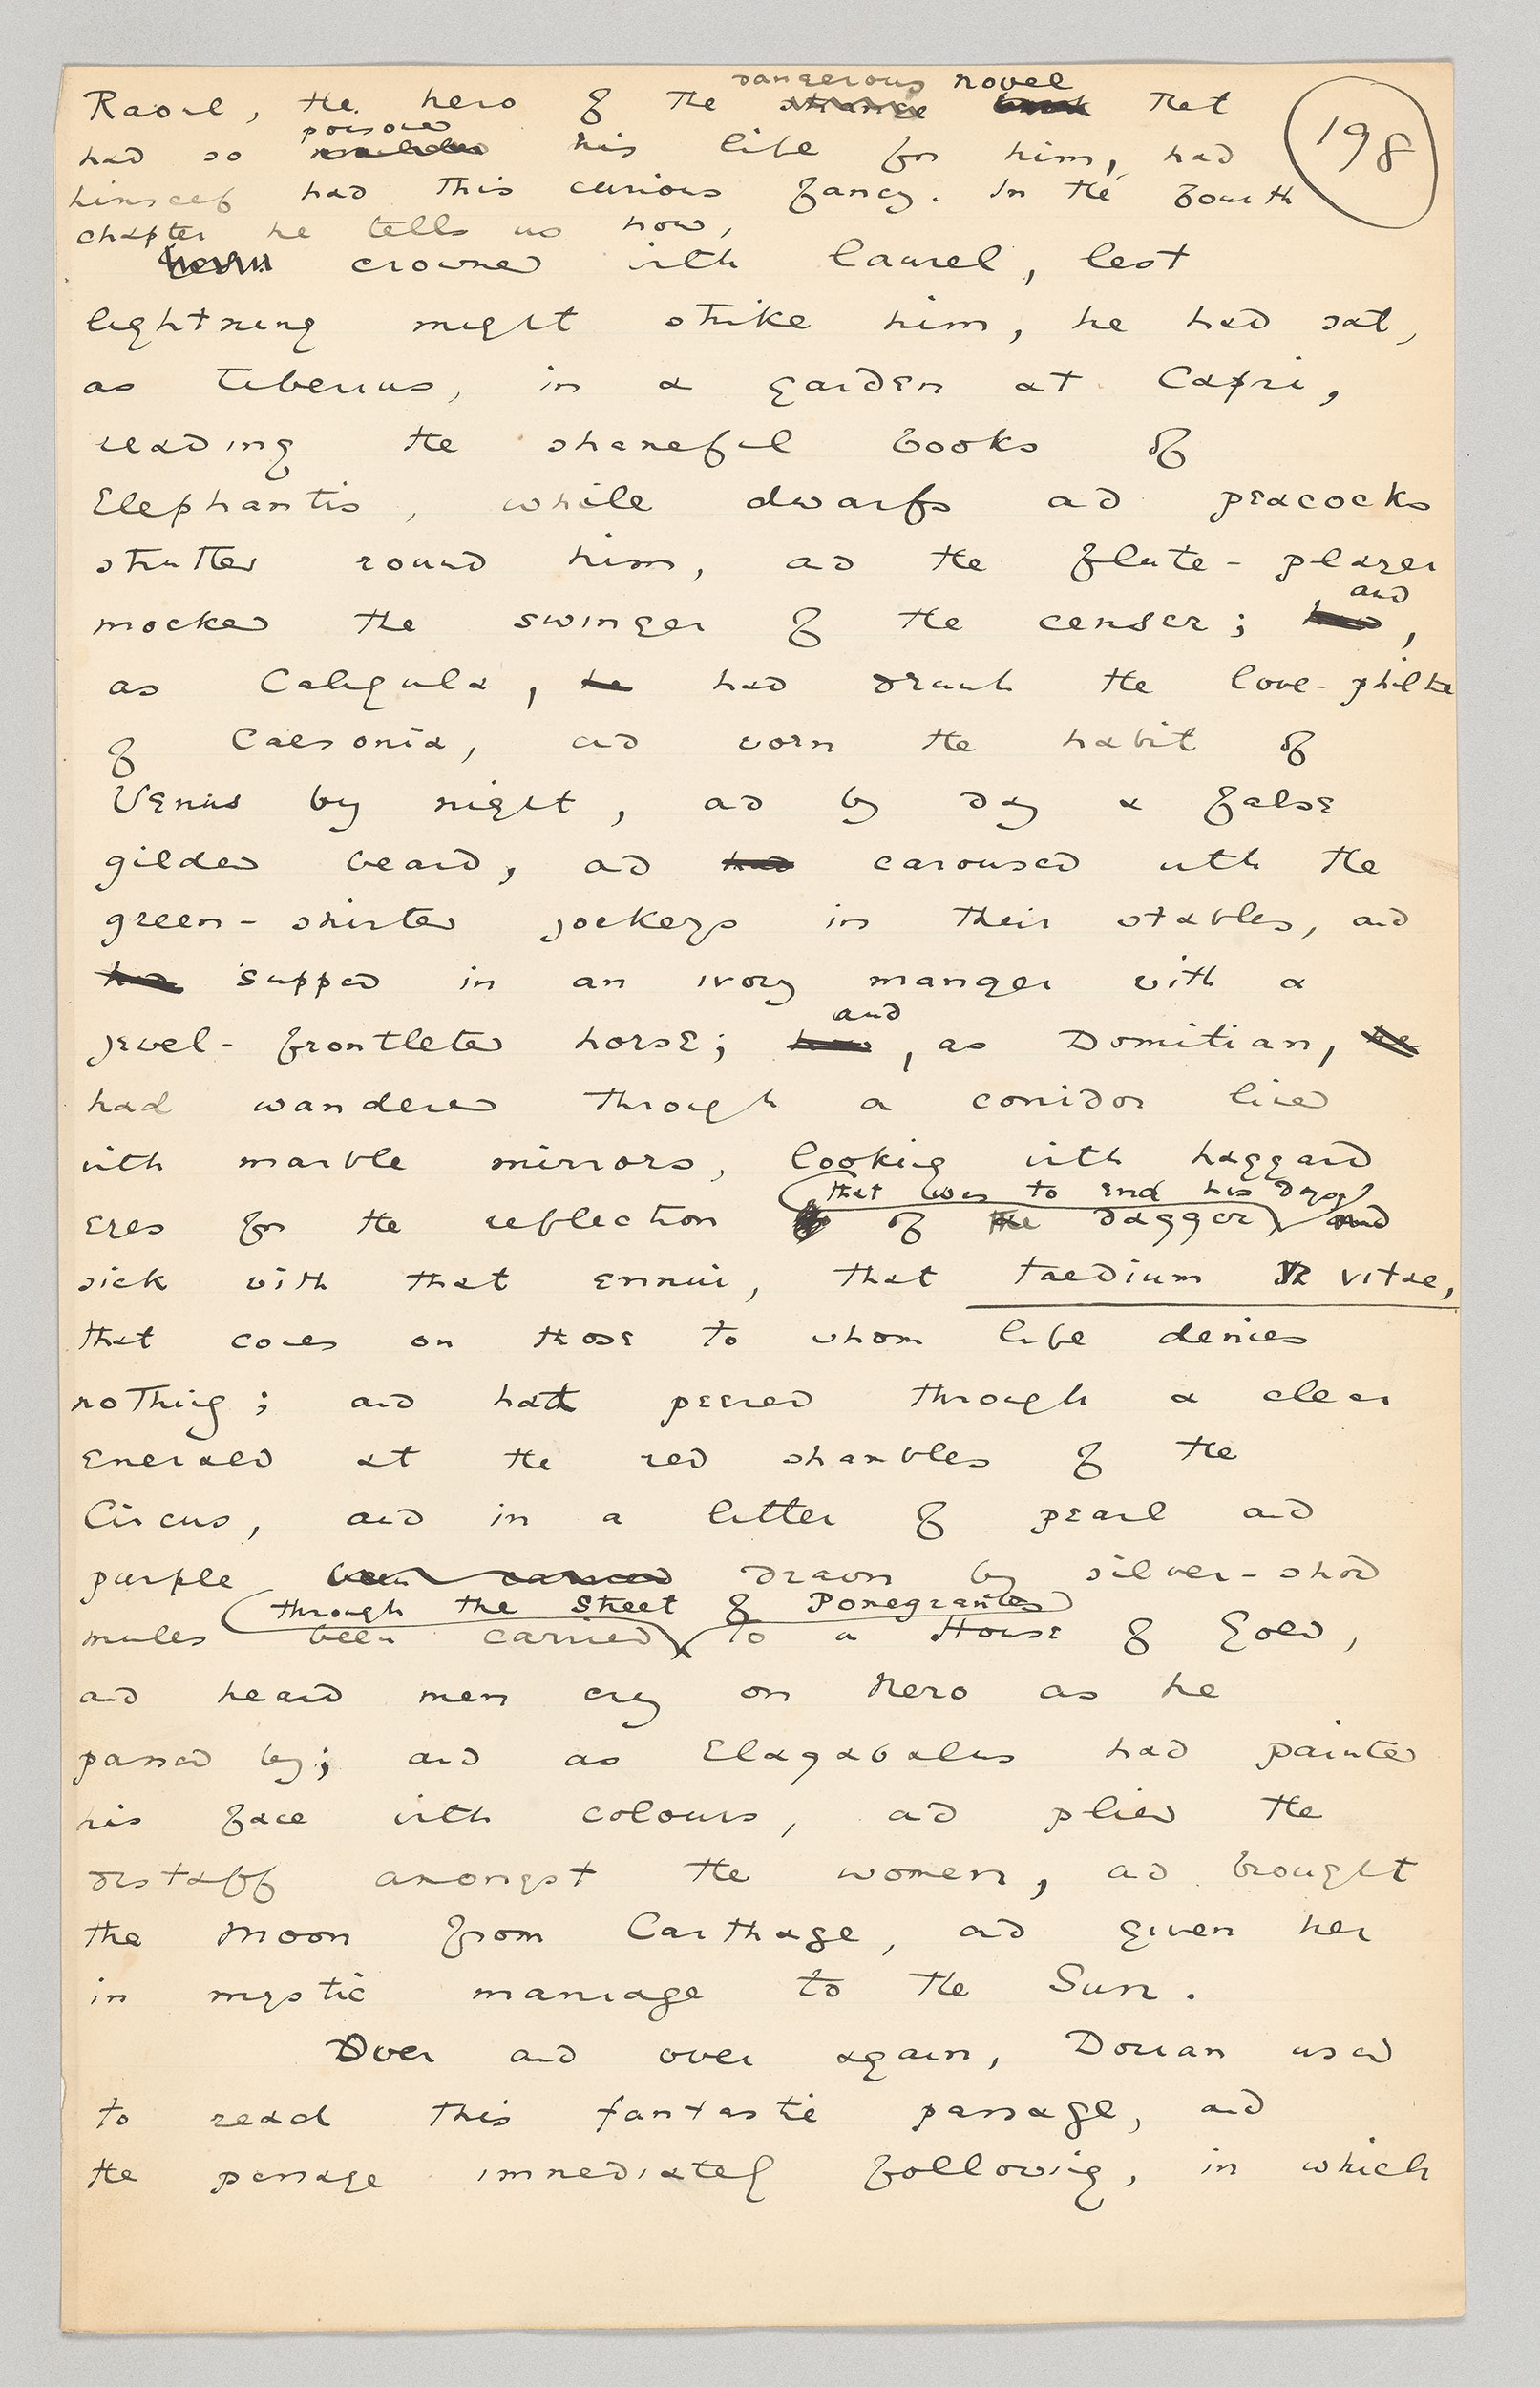 dangerous novel
Raoul, the hero of the strange book that
198
poisoned
had so his life for him, had
himself had this curious fancy. In the fourth
chapter he tells us how,
crowned with laurel, lest
lightning might strike him, he had sat,
as Tiberius, in a garden at Capri,
reading the shameful books of
Elephantis, while dwarfs and peacocks
strutted round him, and the flute-player
and
mocked the swinger of the censer; had,
as Caligula, he had drank the love-philtre
of Caesonia, and worn the habit of
Venus by night, and by day a false
gilded beard, and had caroused with the
green-shirted jockeys in their stables, and
had supped in an ivory manger with a
and
jewel-frontleted horse; had, as Domitian, he
had wandered through a corridor lined
with marble mirrors, looking with haggard
that was to end his days,
eyes for the reflection of the dagger) and
sick with that ennui, that taedium vitae,
that comes on those to whom life denies
nothing; and had peered through a clear
emerald at the red shambles of the
Circus, and in a litter of pearl and
purple been carried drawn by silver-shod
through the Street of Pomegranates
mules been carried to a House of Gold,
and heard men cry on Nero as he
passed by; and as Elagabalus had painted
his face with colours, and plied the
distaff amongst the women, and brought
the Moon from Carthage, and given her
in mystic marriage to the Sun.
Over and over again, Dorian used
to read this fantastic passage, and
the passage immediately following, in which